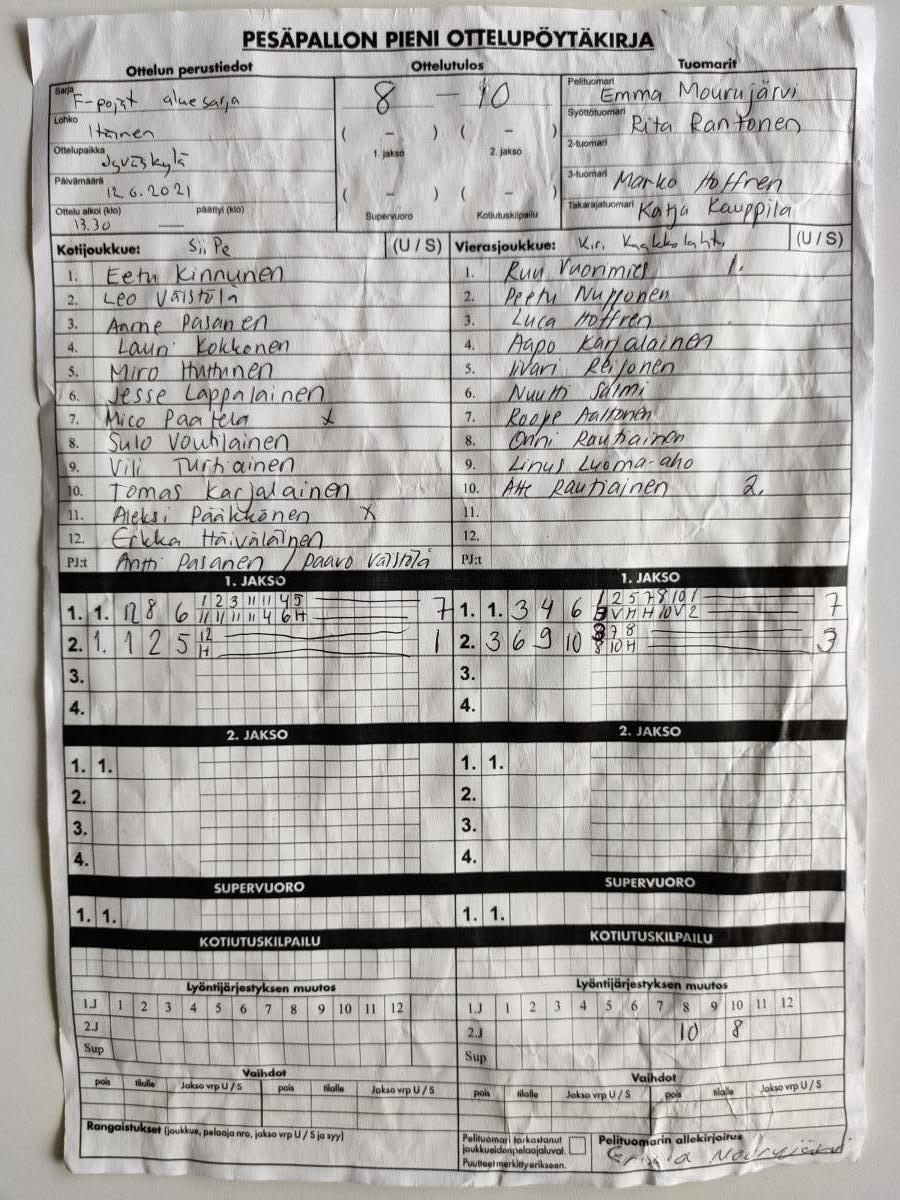 PESÄPALLON PIENI OTTELUPÖYTÄKIRJA
Ottelun perustiedot
Sarja F-pojat aluesarja
Lohko Itäinen
Ottelupaikka Jyväskylä
Päivämäärä 12.6.2021
Ottelu alkoi (klo) päättyi (klo)
13.30 —
Ottelutulos
8 — 10
( – ) ( – )
1. jakso 2. jakso
( – ) ( – )
Supervuoro Kotiutuskilpailu
Tuomarit
Pelituomari Emma Mourujärvi
Syöttötuomari Rita Rantonen
2-tuomari
3-tuomari Marko Hoffren
Takarajatuomari Katja Kauppila
Kotijoukkue: SiiPe (U / S)
1. Eetu Kinnunen
2. Leo Väistölä
3. Pasanen
4. Lauri Kokkonen
5. Miro Huttunen
6. Jesse Lappalainen
7. Mico Paatela x
8. Sulo Voutilainen
9. Vili Turtiainen
10. Tomas Karjalainen
11. Aleksi Pääkkönen x
12. Erkka Häiväläinen
PJ:t Antti Pasanen / Paavo Väistölä
Vierasjoukkue: Kir. (U / S)
1. Ruu Vuorimies 1.
2. Peetu Nupponen
3. Luca Hoffren
4. Aapo Karjalainen
5. Iivari Reijonen
6. Nuutti Salmi
7. Roope Aaltonen
8. Onni Rautiainen
9. Linus Luoma-aho
10. Atte Rautiainen 2.
11.
12.
PJ:t
1. JAKSO
1. 1. 12 8 6 1 2 3 11 11 4 5 7
11 11 11 11 4 6 H
2. 1. 1 2 5 12 1
H
3.
4.
1. JAKSO
1. 1. 3 4 6 1 2 5 7 8 10 1 7
5 V H H 10 V 2
2. 3 6 9 10 3 7 8 3
8 10 H
3.
4.
2. JAKSO
1. 1.
2.
3.
4.
2. JAKSO
1. 1.
2.
3.
4.
SUPERVUORO
1. 1.
SUPERVUORO
1. 1.
KOTIUTUSKILPAILU
KOTIUTUSKILPAILU
Lyöntijärjestyksen muutos
1.J 1 2 3 4 5 6 7 8 9 10 11 12
2.J
Sup
Lyöntijärjestyksen muutos
1.J 1 2 3 4 5 6 7 8 9 10 11 12
2.J 10 8
Sup
Vaihdot
pois tilalle Jakso vrp U / S pois tilalle Jakso vrp U / S
Vaihdot
pois tilalle Jakso vrp U / S pois tilalle Jakso vrp U / S
Rangaistukset (joukkue, pelaaja nro, jakso vrp U / S ja syy)
Pelituomari tarkastanut
joukkueiden pelaajaluvat.
Puutteet merkitty erikseen.
Pelituomarin allekirjoitus